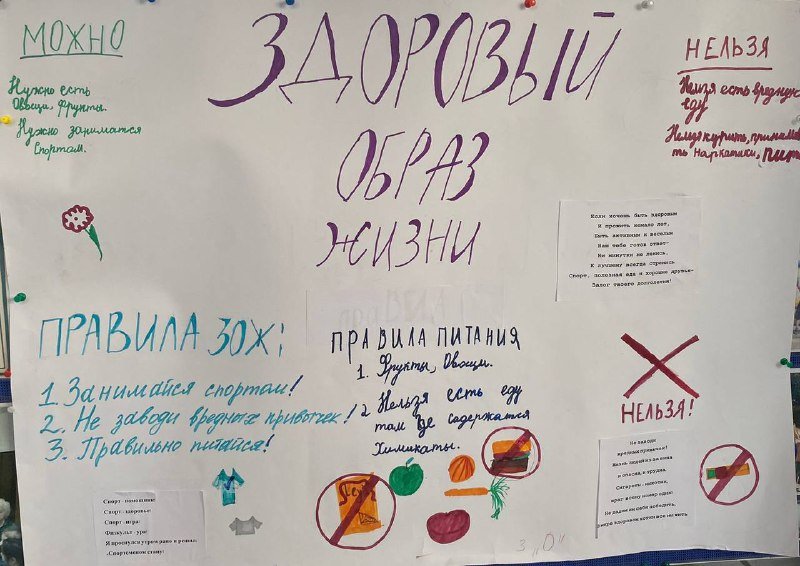 МОЖНО
Нужно есть
Овощи, Фрукты.
Нужно заниматся
Спортам.
ЗДОРОВЫЙ
ОБРАЗ
ЖИЗНИ
НЕЛЬЗЯ
Нелзя есть вредную
еду
Нелзя курить, принима
ть наркатики, пит
Если хочешь быть здоровым
И прожить немало лет,
Быть активным и веселым
Нам тебе готов ответ-
Ни минутки не ленись,
К лучшему всегда стремись
Спорт, полезная еда и хорошие друзья-
Залог твоего долголетия!
ПРАВИЛА ЗОЖ:
1. Занимайся спортом!
2. Не заводи вредных привычек!
3. Правильно питайся!
ПРАВИЛА ПИТАНИЯ
1. Фрукты, Овощи.
2 Нельзя есть еду
там где содержатся
Химикаты.
НЕЛЬЗЯ!
Не заводи
вредных привычек!
Жизнь людей и так она
и опасна, и трудна.
Сигареты - никотин,
враг всему номер один!
Не дадим им себя победить,
Спорт - помощник!
Спорт - здоровье!
Спорт - игра!
Физкульт - ура!
Я проснулся утром рано и решил:
-Спортсменом стану!
3 „О"